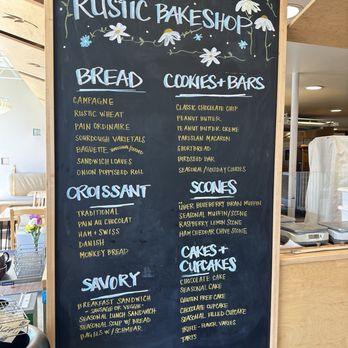 RUSTIC BAKESHOP
BREAD
CAMPAGNE
RUSTIC WHEAT
PAIN ORDINAIRE
SOURDOUGH VARIETALS
BAGUETTE
SANDWICH LOAVES
ONION POPPYSEED ROLL
CROISSANT
TRADITIONAL
PAIN AU CHOCOLAT
HAM + SWISS
DANISH
MONKEY BREAD
SAVORY
BREAKFAST SANDWICH
- SAUSAGE OR VEGGIE -
SEASONAL LUNCH SANDWICH
SEASONAL SOUP W/ BREAD
BAGELS W/ SCHMEAR
COOKIES + BARS
CLASSIC CHOCOLATE CHIP
PEANUT BUTTER
PEANUT BUTTER CREME
PARISIAN MACARON
SHORTBREAD
BIRDSEED BAR
SEASONAL/HOLIDAY COOKIES
SCONES
ÜBER BLUEBERRY BRAN MUFFIN
SEASONAL MUFFIN/SCONE
RASPBERRY LEMON SCONE
HAM CHEDDAR CHIVE SCONE
CAKES +
CUPCAKES
CHOCOLATE CAKE
SEASONAL CAKE
GLUTEN FREE CAKE
CHOCOLATE CUPCAKE
SEASONAL FILLED CUPCAKE
TARTS